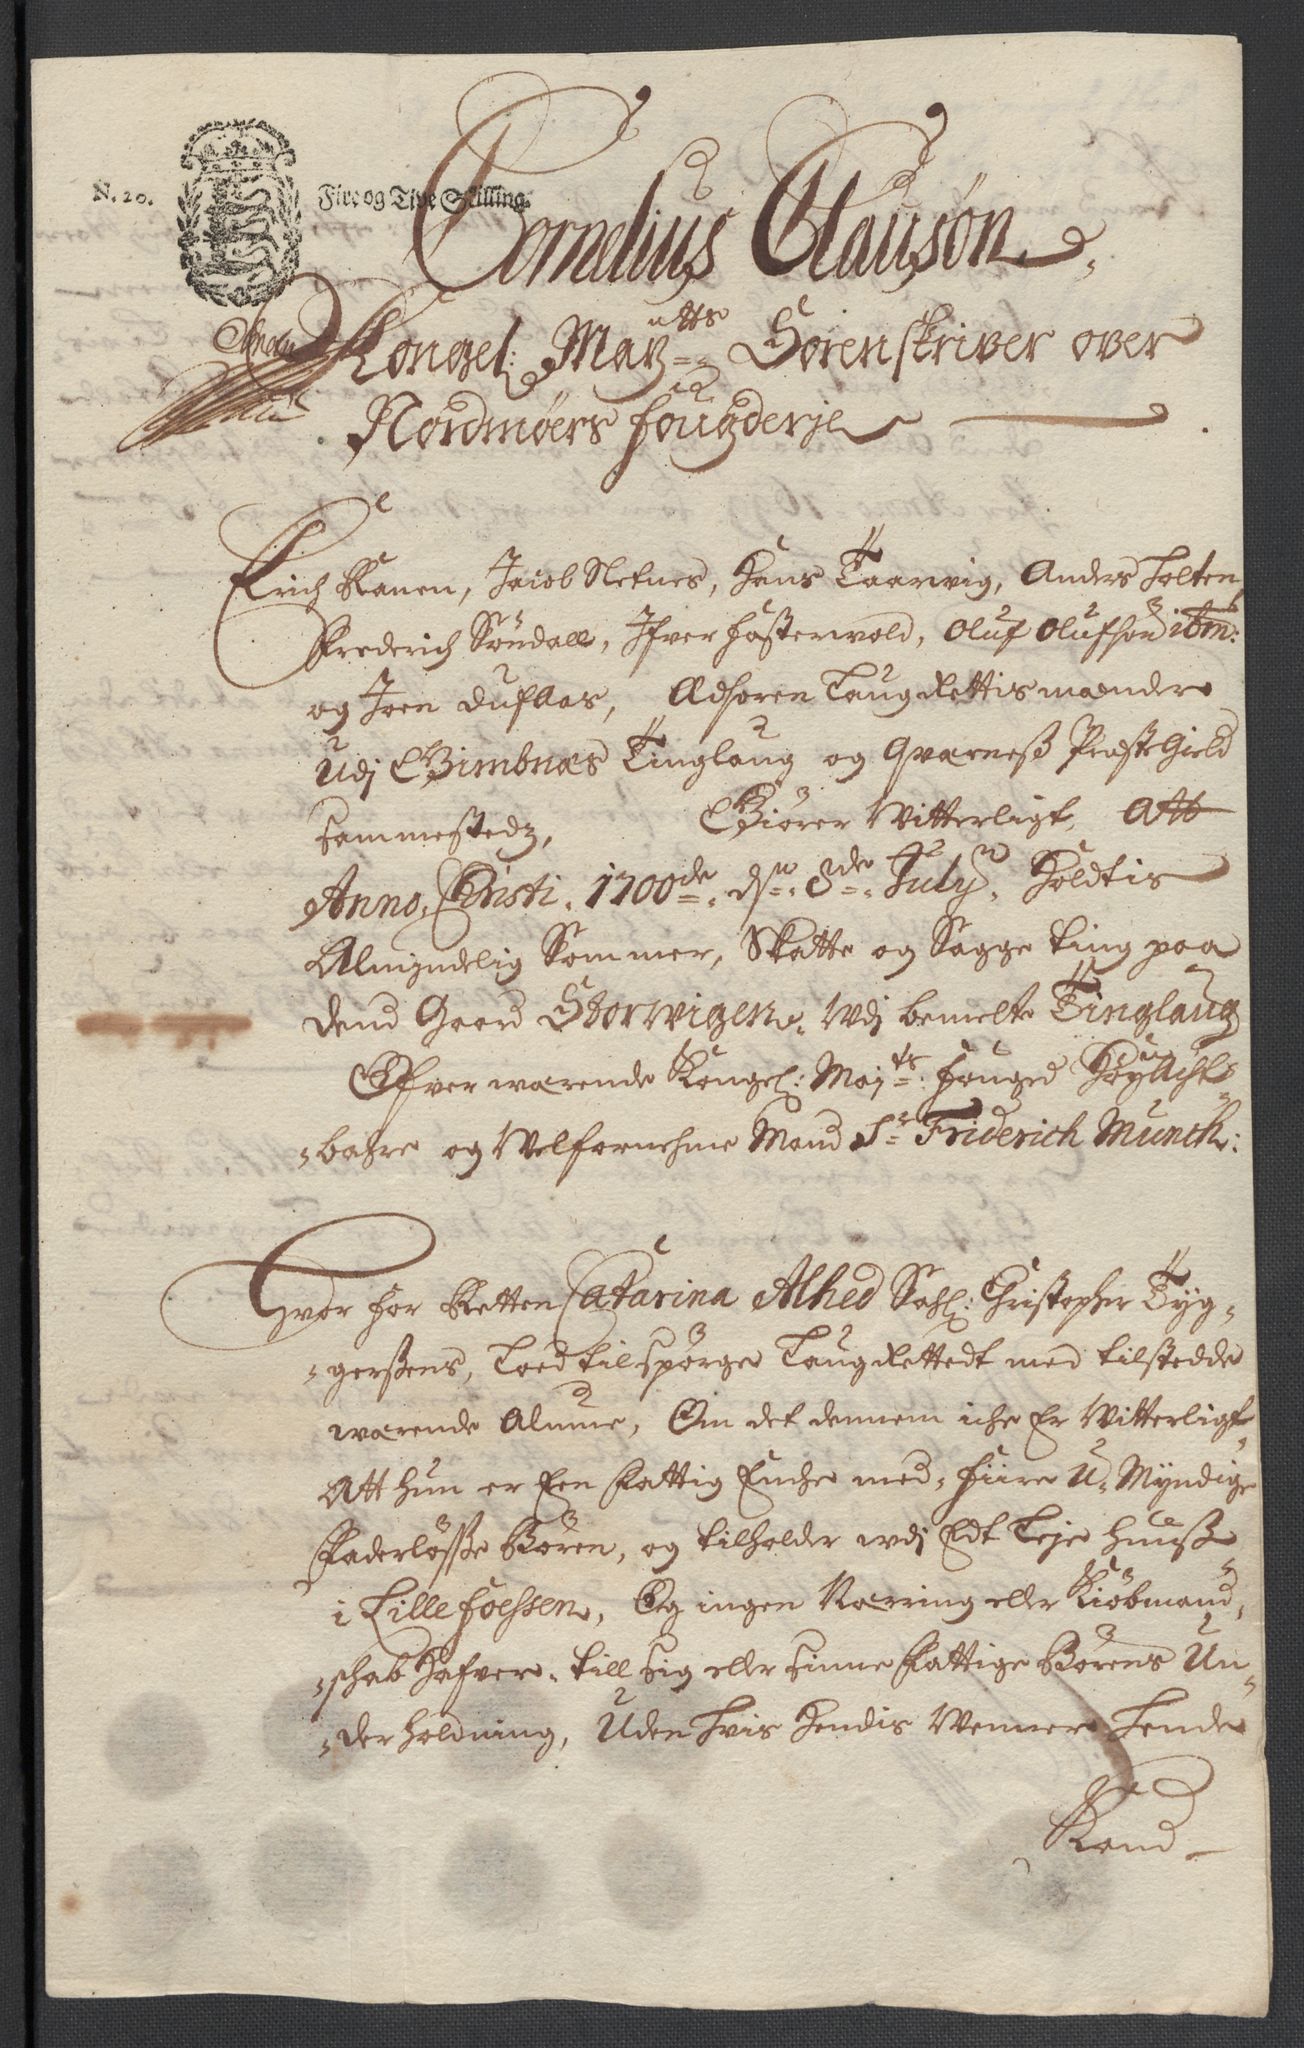 N. 20. Fire og Tive Skilling.
Cornelius Clausøn
Kongel: May:tts Sorenskriver over
Nordmøers fougderje
Erich Ranen, Jacob Nefnes, Hans Taarwig, Anders Tolten,
Frederich Søndall, Ifver fosterwold, Oluf Olufsøn ibm:
og Joen duflaas, Adsoren Laug Rettismændr
Udj Gimbnæs Tinglaug og Qværneß Præstegield
sammestedz, Giører Vitterligt, Att
Anno Christi. 1700de. dn. 8de July. Holdtis
Almindelig Sommer, Skatte og Sagge ting paa
dend Gaard Storwigen. Udj bemelte Tinglaug
Ofververwarende Kongel: Mayts: fouged Høyacht-
-bahre og Velfornehme Mand Sr Friderich Munch:
Hvor for Retten Catarina Alhed Sahl: Christopher Tyg-
-gerßens, Loed tilspørge Laug Rettedt med tilstedde
wærende Almue, Om det dennem iche Er Vitterligt
Att hun er Een fattig Enche med fiire U-Myndige
faderløsse Børen, og tilholder udj Edt Leje Huuß
i Lille foessen, Og ingen Nærring eller Kiøbmand-
-schab Hafver, till sig eller sinne fattige Børens Un-
-derholdning, Uden hvis Hendis Venner hende
Kand